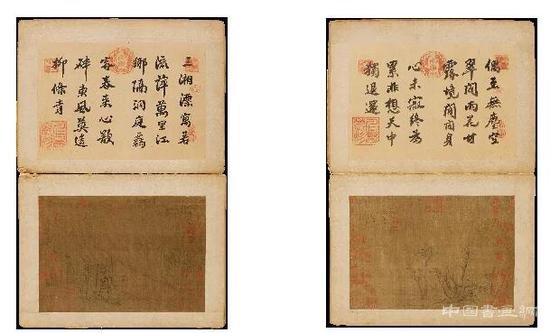 三湘漂寓若
流萍萬里江
鄉隔洞庭羈
客春來心欲
碎東風莫遣
柳條青
偶至無塵空
翠間雨花甘
露境閒閒身
心未寂終為
累非想天中
獨退還
中国书画网